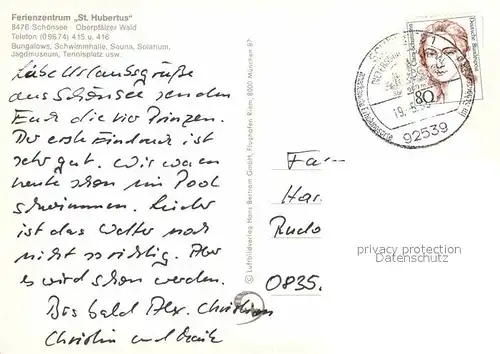 Ferienzentrum „St. Hubertus“
8476 Schönsee Oberpfälzer Wald
Telefon (09674) 415 u. 416
Bungalows, Schwimmhalle, Sauna, Solarium,
Jagdmuseum, Tennisplatz usw.
Liebe Urlaubsgrüße
aus Schönsee senden
Euch die vier Prinzen.
Der erste Eindruck ist
sehr gut. Wir waren
heute schon im Pool
schwimmen. Leider
ist das Wetter noch
nicht so richtig. Aber
es wird schon werden.
Bis bald Alex. Christian
Christin und
© Luftbildverlag Hans Bertram GmbH, Flughafen Riem, 8000 München 87
Deutsche Bundespost
80
19.
92539
Fam
Har
Rudo
0835
privacy protection
Datenschutz